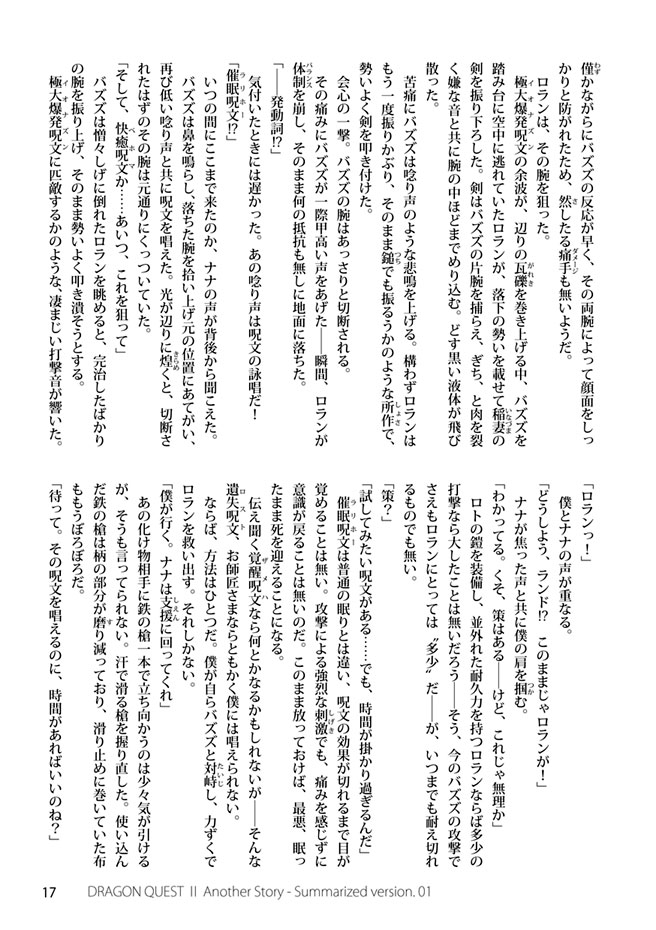 僅かながらにバズズの反応が早く、その両腕によって顔面をしっ
かりと防がれたため、然したる痛手も無いようだ。
ロランは、その腕を狙った。
極大爆発呪文の余波が、辺りの瓦礫を巻き上げる中、バズズを
踏み台に空中に逃れていたロランが、落下の勢いを載せて稲妻の
剣を振り下ろした。剣はバズズの片腕を捕らえ、ぎち、と肉を裂
く嫌な音と共に腕の中ほどまでめり込む。どす黒い液体が飛び
散った。
苦痛にバズズは唸り声のような悲鳴を上げる。構わずロランは
もう一度振りかぶり、そのまま鎚でも振るうかのような所作で、
勢いよく剣を叩き付けた。
会心の一撃。バズズの腕はあっさりと切断される。
その痛みにバズズが一際甲高い声をあげた――瞬間、ロランが
体制を崩し、そのまま何の抵抗も無しに地面に落ちた。
「――発動詞!?」
気付いたときには遅かった。あの唸り声は呪文の詠唱だ！
「催眠呪文!?」
いつの間にここまで来たのか、ナナの声が背後から聞こえた。
バズズは鼻を鳴らし、落ちた腕を拾い上げ元の位置にあてがい、
再び低い唸り声と共に呪文を唱えた。光が辺りに煌くと、切断さ
れたはずのその腕は元通りにくっついていた。
「そして、快癒呪文か……あいつ、これを狙って」
バズズは憎々しげに倒れたロランを眺めると、完治したばかり
の腕を振り上げ、そのまま勢いよく叩き潰そうとする。
極大爆発呪文に匹敵するかのような、凄まじい打撃音が響いた。
「ロランっ！」
僕とナナの声が重なる。
「どうしよう、ランド!?　このままじゃロランが！」
ナナが焦った声と共に僕の肩を掴む。
「わかってる。くそ、策はある――けど、これじゃ無理か」
ロトの鎧を装備し、並外れた耐久力を持つロランならば多少の
打撃なら大したことは無いだろう――そう、今のバズズの攻撃で
さえもロランにとっては〝多少〟だ――が、いつまでも耐え切れ
るものでも無い。
「策？」
「試してみたい呪文がある……でも、時間が掛かり過ぎるんだ」
催眠呪文は普通の眠りとは違い、呪文の効果が切れるまで目が
覚めることは無い。攻撃による強烈な刺激でも、痛みを感じずに
意識が戻ることは無いのだ。このまま放っておけば、最悪、眠っ
たまま死を迎えることになる。
伝え聞く覚醒呪文なら何とかなるかもしれないが――そんな
遺失呪文、お師匠さまならともかく僕には唱えられない。
ならば、方法はひとつだ。僕が自らバズズと対峙し、力ずくで
ロランを救い出す。それしかない。
「僕が行く。ナナは支援に回ってくれ」
あの化け物相手に鉄の槍一本で立ち向かうのは少々気が引ける
が、そうも言ってられない。汗で滑る槍を握り直した。使い込ん
だ鉄の槍は柄の部分が磨り減っており、滑り止めに巻いていた布
ももうぼろぼろだ。
「待って。その呪文を唱えるのに、時間があればいいのね？」
17 DRAGON QUEST II Another Story - Summarized version. 01